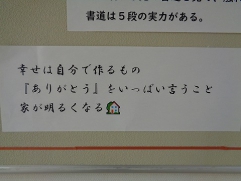 書道は5段の実力がある。
幸せは自分で作るもの
『ありがとう』をいっぱい言うこと
家が明るくなる